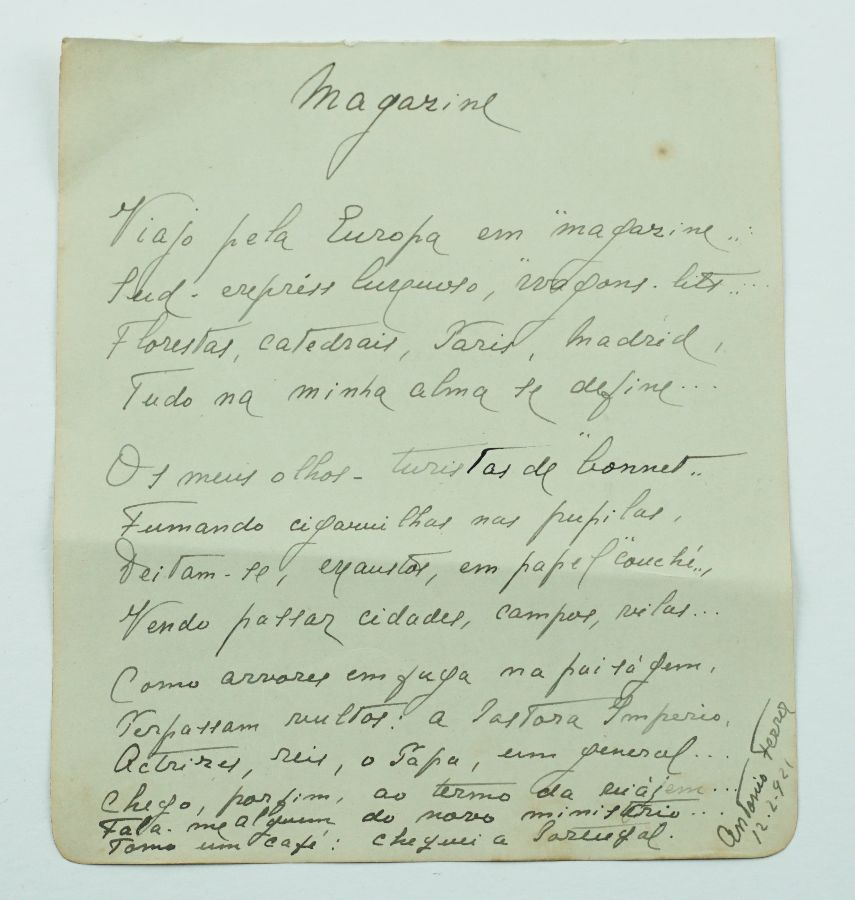 Magazine
Viajo pela Europa em "magazine"...
Sud-expréss luxuoso, "wagons-lits"...
Florestas, catedrais, Paris, Madrid,
Tudo na minha alma se define...
Os meus olhos - turistas de "bonnet"
Fumando cigarrilhas nas pupilas,
Deitam-se, exaustos, em papel "couché",
Vendo passar cidades, campos, vilas...
Como arvores em fuga na paiságem,
Perpassam vultos: a Pastora Imperio,
Actrizes, reis, o Papa, um general...
Chego, por fim, ao termo da viájem...
Fala-me alguem do novo ministério...
Tomo um café: cheguei a Portugal.
Antonio Ferro
12-2-921